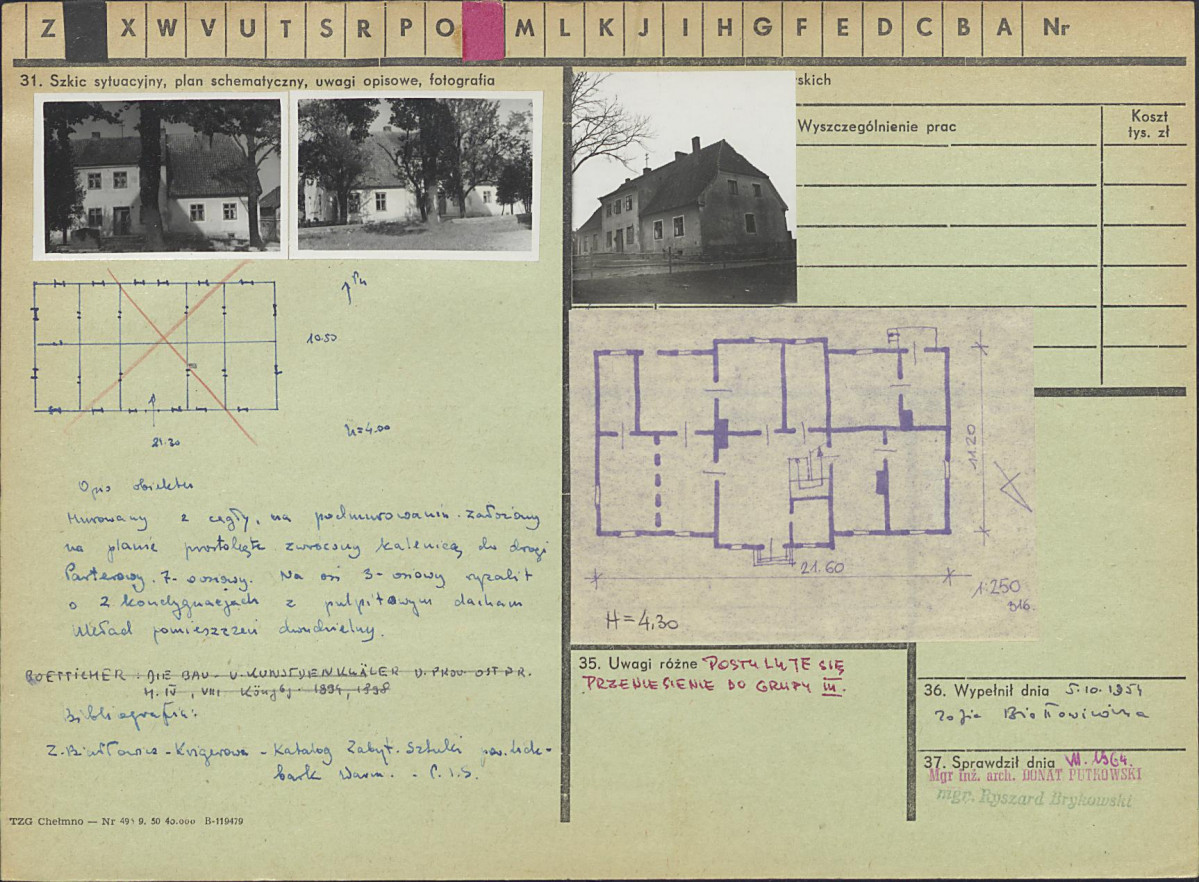 Z X W V U T S R P O M L K J I H G F E D C B A Nr
31. Szkic sytuacyjny, plan schematyczny, uwagi opisowe, fotografia
skich
Wyszczególnienie prac
Koszt
tys. zł
Pn
10.50
21.30
H=4.00
Opis obiektu
Murowany z cegły, na podmurowaniu. Założony
na planie prostokąta zwrócony kalenicą do drogi
Parterowy. 7-osiowy. Na osi 3-osiowy ryzalit
o 2 kondygnacjach z pulpitowym dachem
Układ pomieszczeń dwudzielny.
BOETTICHER: DIE BAU- U. KUNSTDENKMÄLER D. PROV. OST PR.
H. IV, VIII Königbg. 1894, 1898
Bibliografia:
Z. - Katalog Zabyt. Sztuki pow. Lidz-
bark Warm. - P.I.S.
TZG Chełmno — Nr 9. 50 40.000 B-119479
11.20
21.60
1:250
316.
H=4,30
35. Uwagi różne POSTULUJE SIĘ
PRZENIESIENIE DO GRUPY III.
36. Wypełnił dnia 5.10.1954
Zofia
37. Sprawdził dnia VII. 1964.
Mgr inż. arch. DONAT PUTKOWSKI
mgr. Ryszard Brykowski